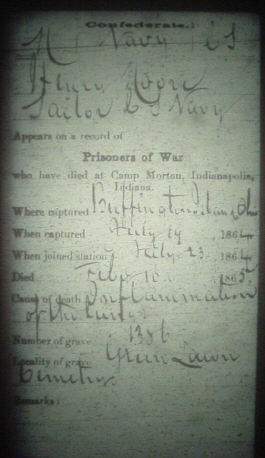 (Confederate.)
M Navy C S
Henry Moore
Sailor C S Navy
Appears on a record of
Prisoners of War
who have died at Camp Morton, Indianapolis,
Indiana.
Where captured Buffington Island O.
When captured July 19, 1864
When joined station July 23, 1864
Died Feb 10, 1865
Cause of death Inflammation
of the lungs
Number of grave 1386
Locality of grave Green Lawn
Cemetery
Remarks: